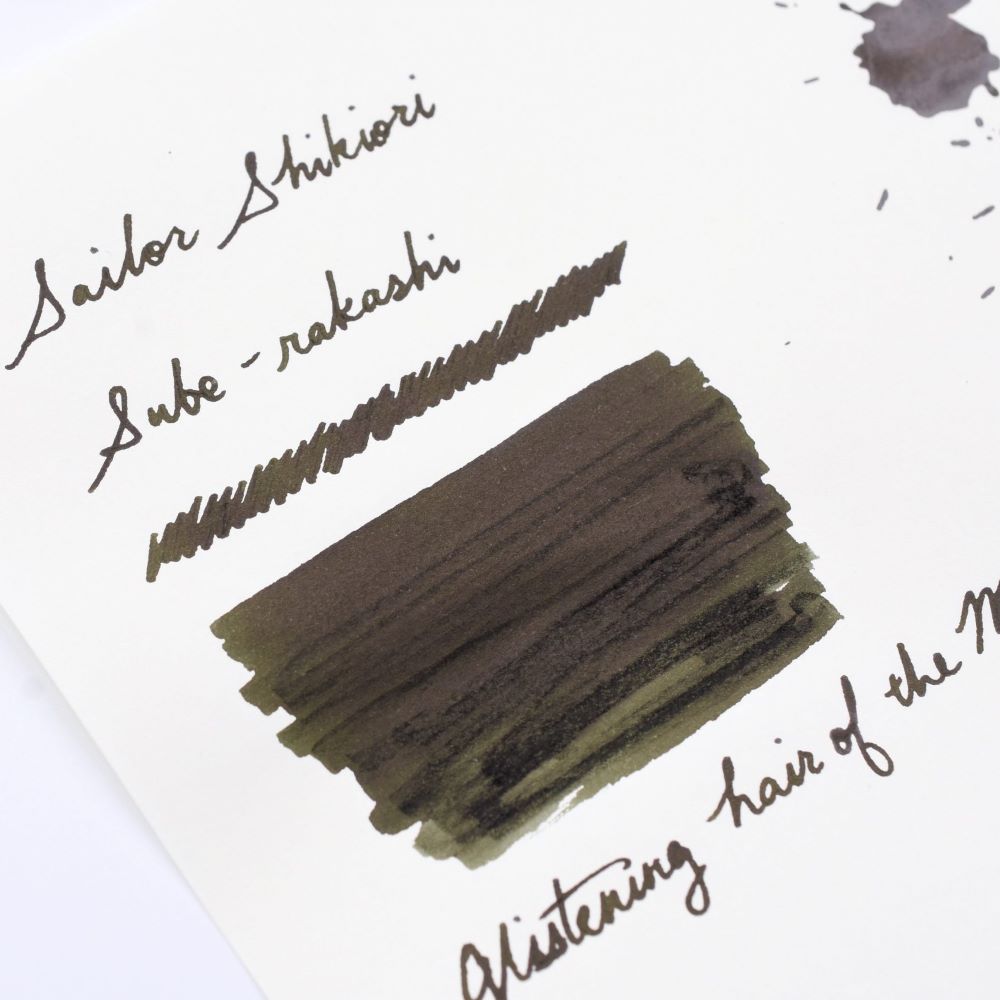 Sailor Shikiori
Sube-rakashi
Glistening hair of the